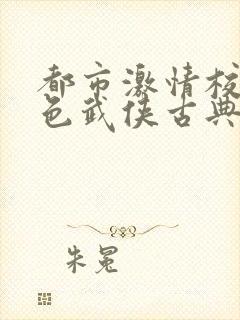 都市激情校
色武侠古典
朱冕